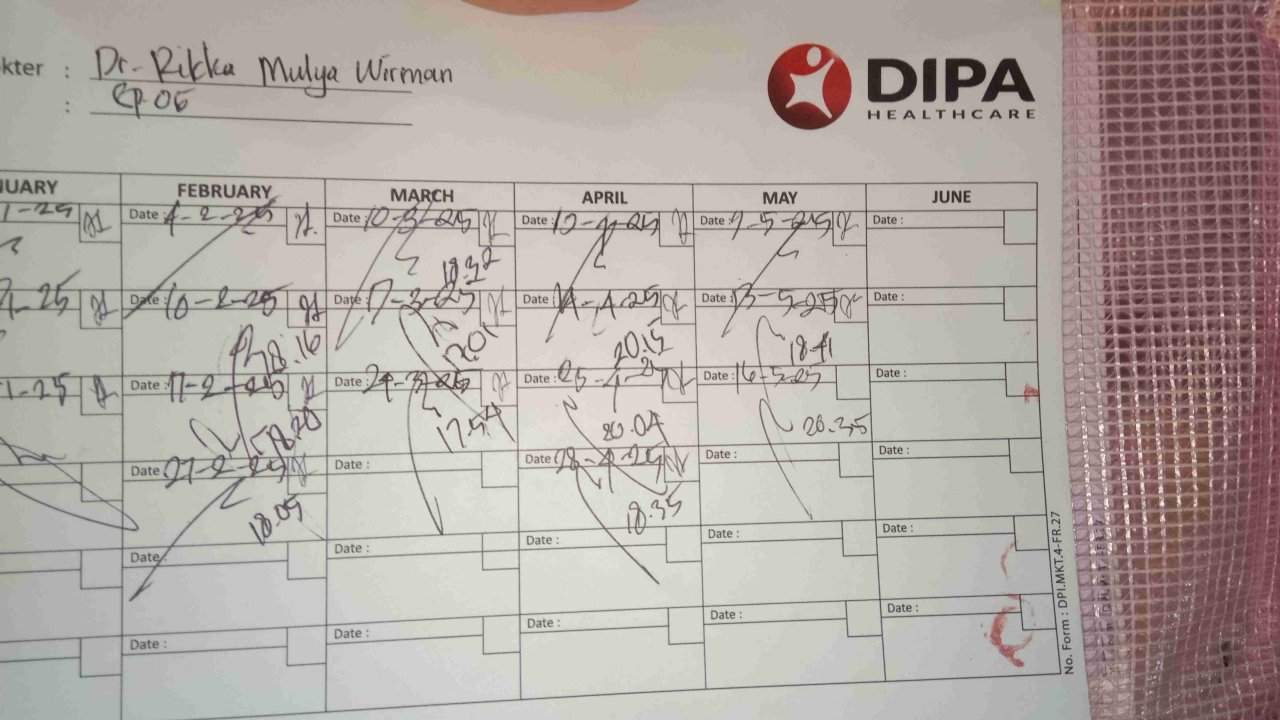 kter : Dr. Rikka Mulya Wirman
: Cp.06
DIPA
HEALTHCARE
UARY FEBRUARY MARCH APRIL MAY JUNE
1-25 Date : 4-2-25 Date : 10-3-25 Date : 10-4-25 Date : 7-5-25 Date :
18.32
-25 Date : 10-2-25 Date : 17-3-25 Date : 14-4-25 Date : 13-5-25 Date :
18.16 20.15 18.41
1-25 Date : 17-2-25 Date : 24-3-25 Date : 25-4-25 Date : 16-5-25 Date :
18.20 17.54 20.04 20.35
Date 27-2-25 Date : Date 28-4-25 Date : Date :
18.05 18.35
Date : Date : Date : Date : Date :
Date : Date : Date : Date : Date :
No. Form : DPI.MKT.4-FR.27